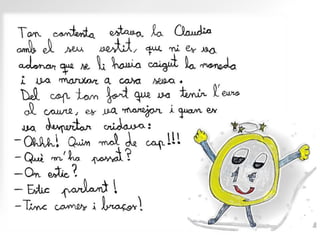 Tan contenta estava la Claudia
amb el seu vestit, que ni es va
adonar que se li havia caigut la moneda
i va marxar a casa seva.
Del cop tan fort que va tenir l'euro
al caure, es va marejar i quan es
va despertar cridava:
- Ohhh! Quin mal de cap!!!
- Què m'ha passat?
- On estic?
- Estic parlant!
- Tinc cames i braços!